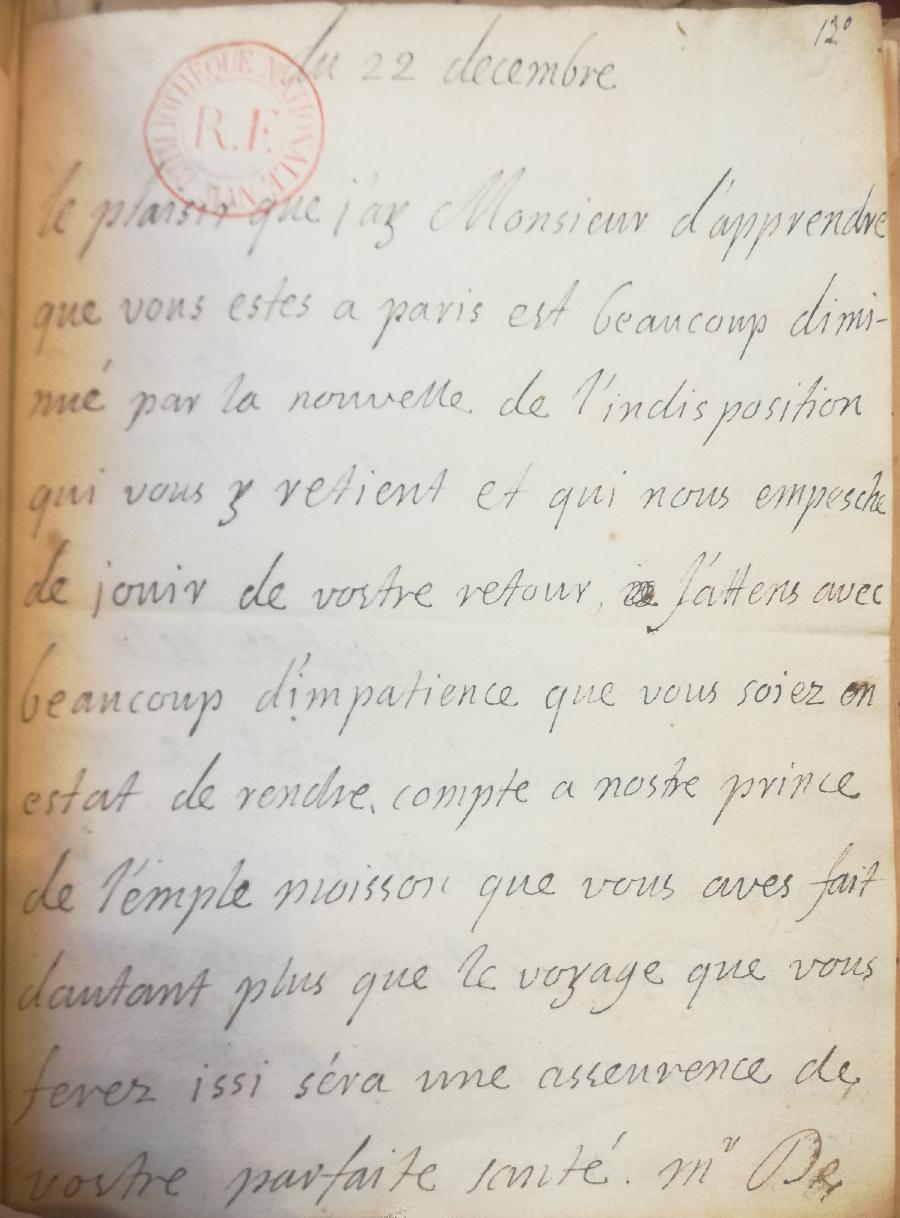 130
du 22 decembre
BIBLIOTHEQUE NATIONALE MAN
R.F.
le plaisir que j'ay Monsieur d'apprendre
que vous estes a paris est beaucoup dimi-
nué par la nouvelle de l'indisposition
qui vous y retient et qui nous empesche
de jouir de vostre retour, J'attens avec
beaucoup d'impatience que vous soiez en
estat de rendre compte a nostre prince
de l'émple moisson que vous aves fait
dautant plus que le voyage que vous
ferez issi séra une asseurence de
vostre parfaite santé. mr De